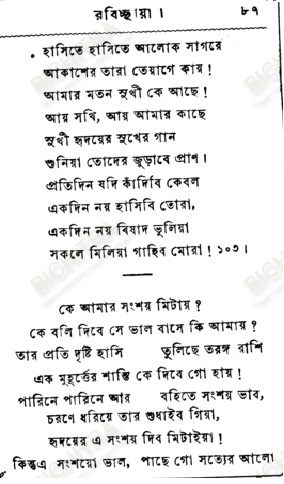 রবিচ্ছায়া। ৮৭
হাসিতে হাসিতে আলোক সাগরে
আকাশের তারা তেয়াগে কায়!
আমার মতন সুখী কে আছে!
আয় সখি, আয় আমার কাছে
সুখী হৃদয়ের সুখের গান
শুনিয়া তোদের জুড়াবে প্রাণ।
প্রতিদিন যদি কাঁদিবি কেবল
একদিন নয় হাসিবি তোরা,
একদিন নয় বিষাদ ভুলিয়া
সকলে মিলিয়া গাহিব মোরা! ১০৩।
কে আমার সংশয় মিটায়?
কে বলি দিবে সে ভাল বাসে কি আমায়?
তার প্রতি দৃষ্টি হাসি তুলিছে তরঙ্গ রাশি
এক মুহূর্ত্তের শান্তি কে দিবে গো হায়!
পারিনে পারিনে আর বহিতে সংশয় ভার,
চরণে ধরিয়ে তার শুধাইব গিয়া,
হৃদয়ের এ সংশয় দিব মিটাইয়া!
কিন্তু এ সংশয়ো ভাল, পাছে গো সত্যের আলো
BIGHNESWAR